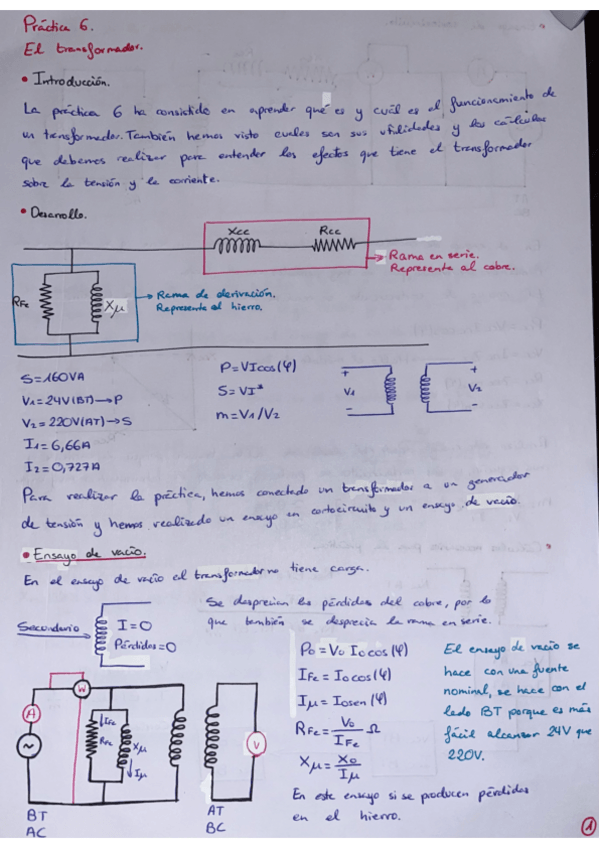 Práctica 6.
El transformador.
• Introducción.
La práctica 6 ha consistido en aprender qué es y cuál es el funcionamiento de
un transformador. También hemos visto cuales son sus utilidades y los cálculos
que debemos realizar para entender los efectos que tiene el transformador
sobre la tensión y la corriente.
• Desarrollo.
Xcc Rcc
Rama en serie.
Representa al cobre.
RFe Xμ
Rama de derivación.
Representa el hierro.
S=160VA
V1=24V(BT)→P
V2=220V(AT)→S
I1=6,66A
I2=0,727A
P=VIcos(φ)
S=VI*
m=V1/V2
+ V1 −
+ V2 −
Para realizar la práctica, hemos conectado un transformador a un generador
de tensión y hemos realizado un ensayo en cortocircuito y un ensayo de vacío.
• Ensayo de vacío.
En el ensayo de vacío el transformador no tiene carga.
Secundario
I=0
Pérdidas=0
Se desprecian las pérdidas del cobre, por lo
que también se desprecia la rama en serie.
P0=V0 I0cos(φ)
IFe=I0cos(φ)
Iμ=I0sen(φ)
RFe=V0/IFe Ω
Xμ=X0/Iμ
El ensayo de vacío se
hace con una fuente
nominal, se hace con el
lado BT porque es más
fácil alcanzar 24V que
220V.
A W
IFe
RFe Xμ
Iμ
V
BT
AC
AT
BC
En este ensayo si se producen pérdidas
en el hierro.
1